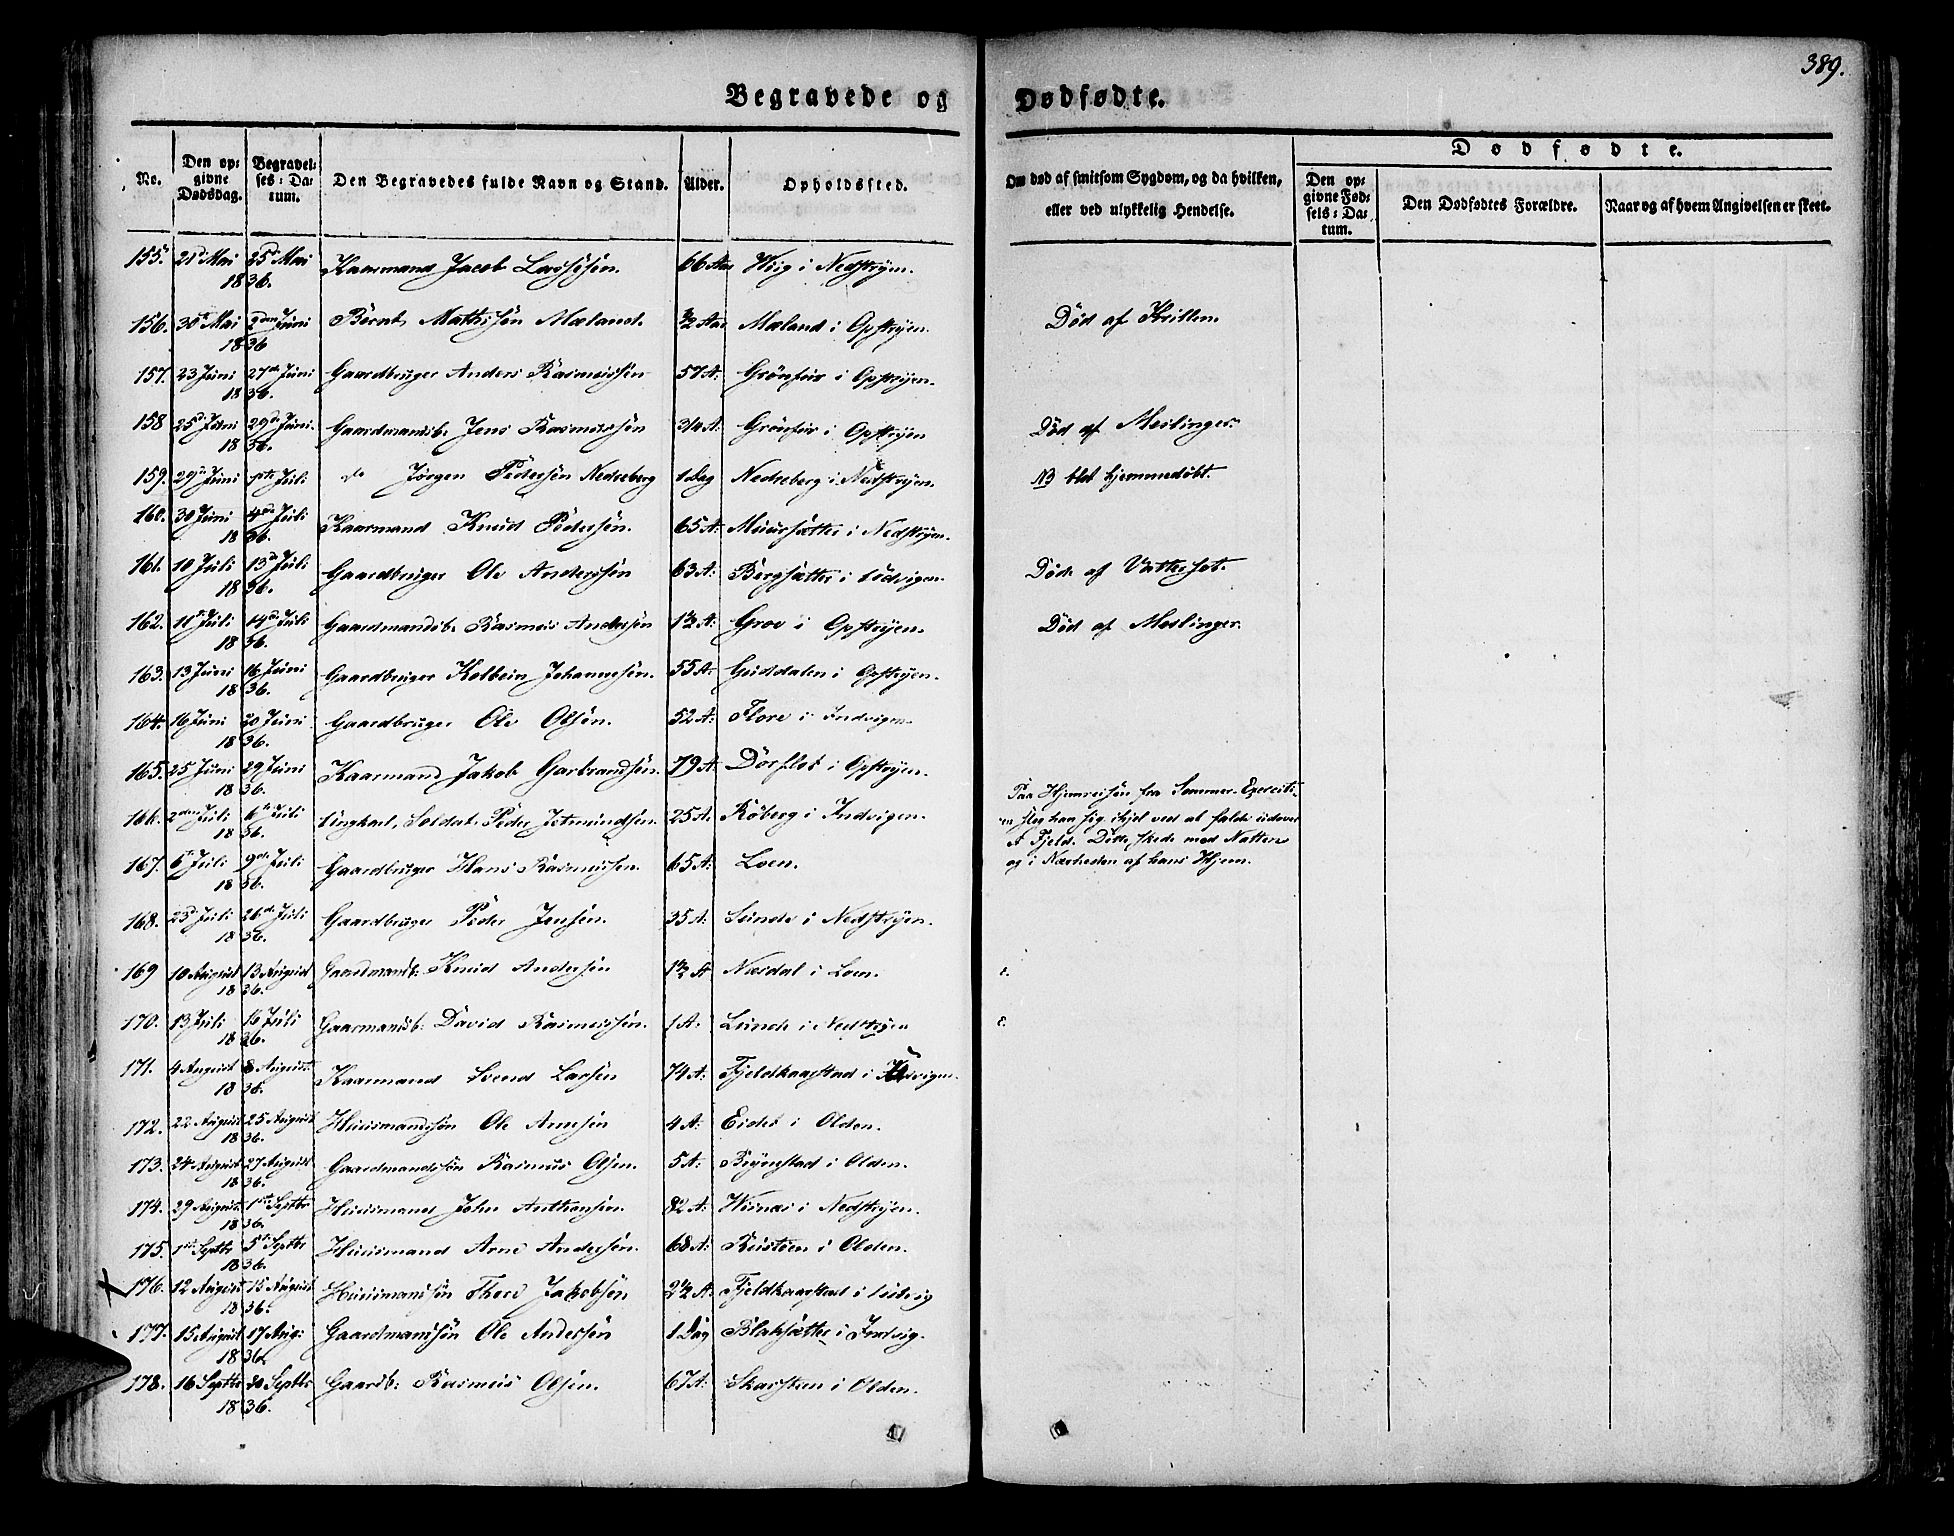 389.
Begravede og Dødfødte.
No. Den opgivne Dødsdag. Begravelses-Datum. Den Begravedes fulde Navn og Stand. Alder. Opholdssted. Om død af smitsom Sygdom, og da hvilken, eller ved ulykkelig Hendelse.
Dødfødte.
Den opgivne Fødsels-Datum. Den Dødfødtes Forældre. Naar og af hvem Angivelsen er skeet.
155. 21 Mai 25 Mai 1836. Kaarmand Jacob 66 Aar i Nedstryen.
156. 30 Mai 2den Juni 1836 Bernt Mathisen Mæland. 1/2 Aar Mæland i Opstryen. Død af
157. 23 Juni 27de Juni 1836. Gaardbruger Anders Rasmussen 57 A: i Opstryen.
158 25d Juni 29de Juni 1836. Gaardmandsb. Jens Rasmussen 3/4 A: i Opstryen Død af Meslinger.
159. 29de Juni 1ste Juli do Jørgen Pedersen Nedreberg 1 Dag Nedreberg i Nedstryen. NB blet hjemmedøbt.
160. 30 Juni 4de Juli 1836. Kaarmand Knud Pedersen. 65 A: i Nedstryen.
161. 10 Juli 13d Juli 1836. Gaardbruger Ole Anderssen 63 A: Bergsætter i Indvigen. Død af Vattersot.
162. 11t Juli 14d Juli 1836. Gaardmandsb. Rasmus Andersen 1 1/2 A: Grov i Opstryen. Død af Meslinger.
163. 13 Juni 16 Juni 1836. Gaardbruger Kolbein Johannesen. 55 A: Guddalen i Opstryen.
164. 16 Juni 20 Juni 1836. Gaardbruger Ole Olsen. 52 A: Flore i Indvigen
165. 25 Juni 29 Juni 1836. Kaarmand Jakob Garbrandsen. 79 A: i Opstryen.
166. 2den Juli 6te Juli 1836. Ungkarl, Soldat Peder 25 A: Røberg i Indvigen. Paa Hjemreisen fra Sommer-Exerciti-
en slog han sig ihjel ved at falde udover
et Fjeld. Dette skede med Natten
og i Nærheden af hans Hjem.
167. 6t Juli 9de Juli 1836. Gaardbruger Hans Rasmussen. 65 A: Loen.
168. 23d Juli 26de Juli 1836. Gaardbruger Peder Jensen. 35 A: Lunde i Nedstryen.
169 10 August 13 August 1836. Gaardmandsb: Knud Andersen 1 1/2 A Næsdal i Loen.
170. 13 Juli 16 Juli 1836. Gaarmandsb: David Rasmussen. 1 A: Lunde i Nedstryen
171. 4 August 8 August 1836. Kaarmand Svend Larsen 74 A: Fjeldkaarstad i Indvigen.
172. 22 August 25 August 1836. Huusmandsøn Ole Arnesen 4 A: Eidet i Olden.
173. 24 August 27 August 1836. Gaardmandsøn Rasmus Olsen. 5 A: Brynestad i Olden.
174. 29 August 1ste Septbr 1836. Huusmand John Anthonsen. 82 A: i Nedstryen.
175. 1ste Septbr 5te Septbr 1836. Huusmand Arne Andersen. 68 A: i Olden.
176. 12 August 15 August 1836. Huusmandsøn Thore Jakobsen 2 1/2 A: Fjeldkaarstad i Indvig
177. 15 August 17 Aug: 1836. Gaardmandsøn Ole Andersen 1 Dag Blaksætter i Indvig.
178. 16 Septbr 20 Septbr 1836. Gaardb: Rasmus Olsen. 67 A: Skarsteen i Olden.